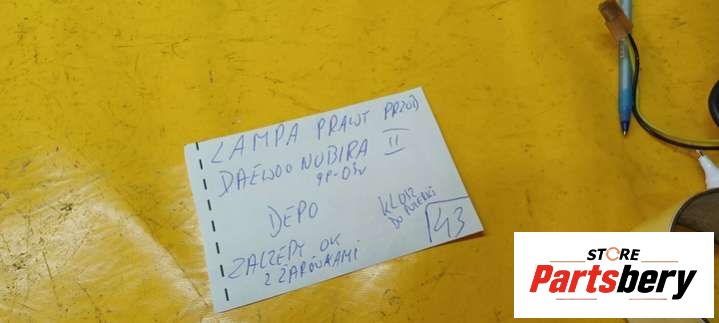 LAMPA PRAWY PRZÓD
DAEWOO NUBIRA II
99-03r
DEPO
KLOSZ
DO POLERKI
ZACZEPY OK
Z ŻARÓWKAMI
43
STORE
Partsbery